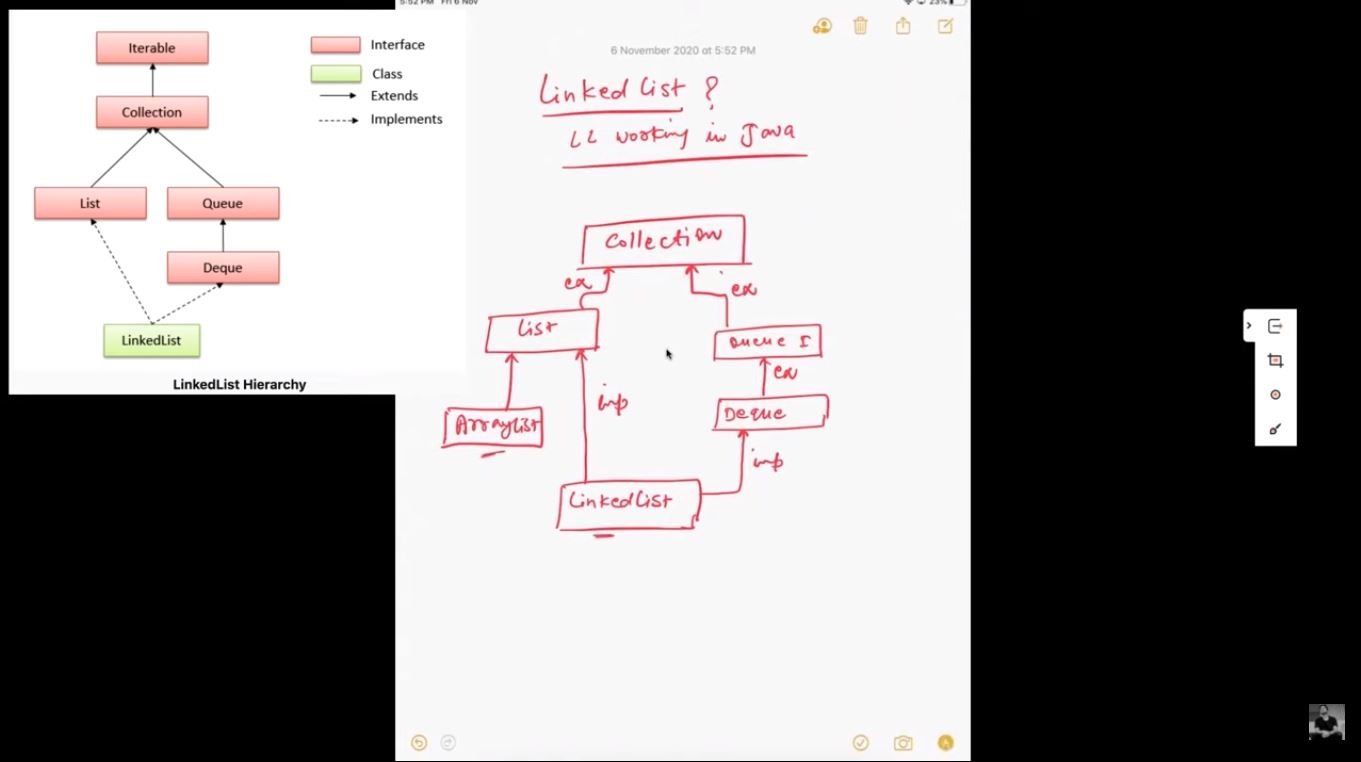 5:52 PM Fri 6 Nov
23%
Iterable
Collection
List
Queue
Deque
LinkedList
Interface
Class
Extends
Implements
LinkedList Hierarchy
6 November 2020 at 5:52 PM
Linked List ?
LL working in Java
Collection
ex
ex
List
Queue I
ex
imp
ArrayList
Deque
imp
LinkedList